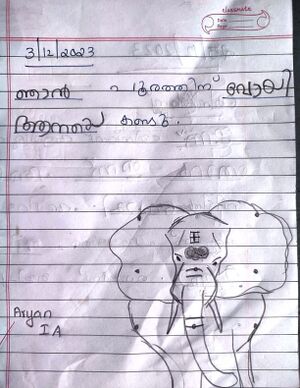 classmate
Date
Page
3/12/2023
ഞാൻ പൂരത്തിന് പോയി
ആനയെ കണ്ടു.
Aryan
I A